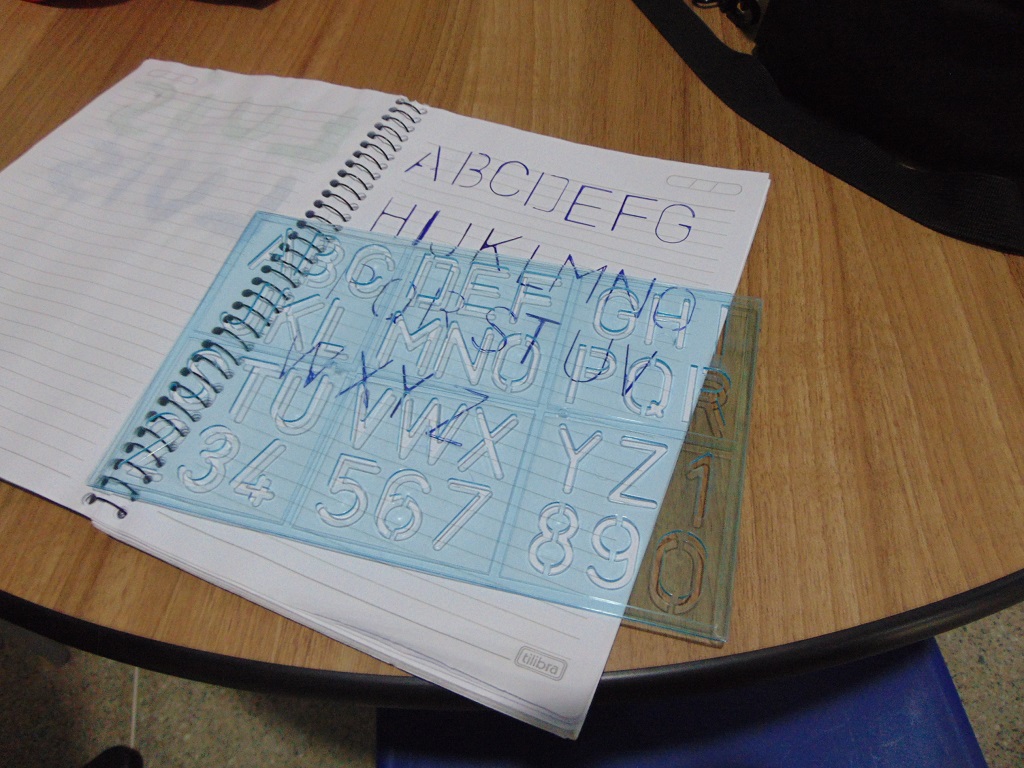 ABCDEFG
HIJKLMNO
PQRSTUV
WXYZ
ABCDEFGHI
KLMNOPQR
TUVWXYZ1
34567890
tilibra